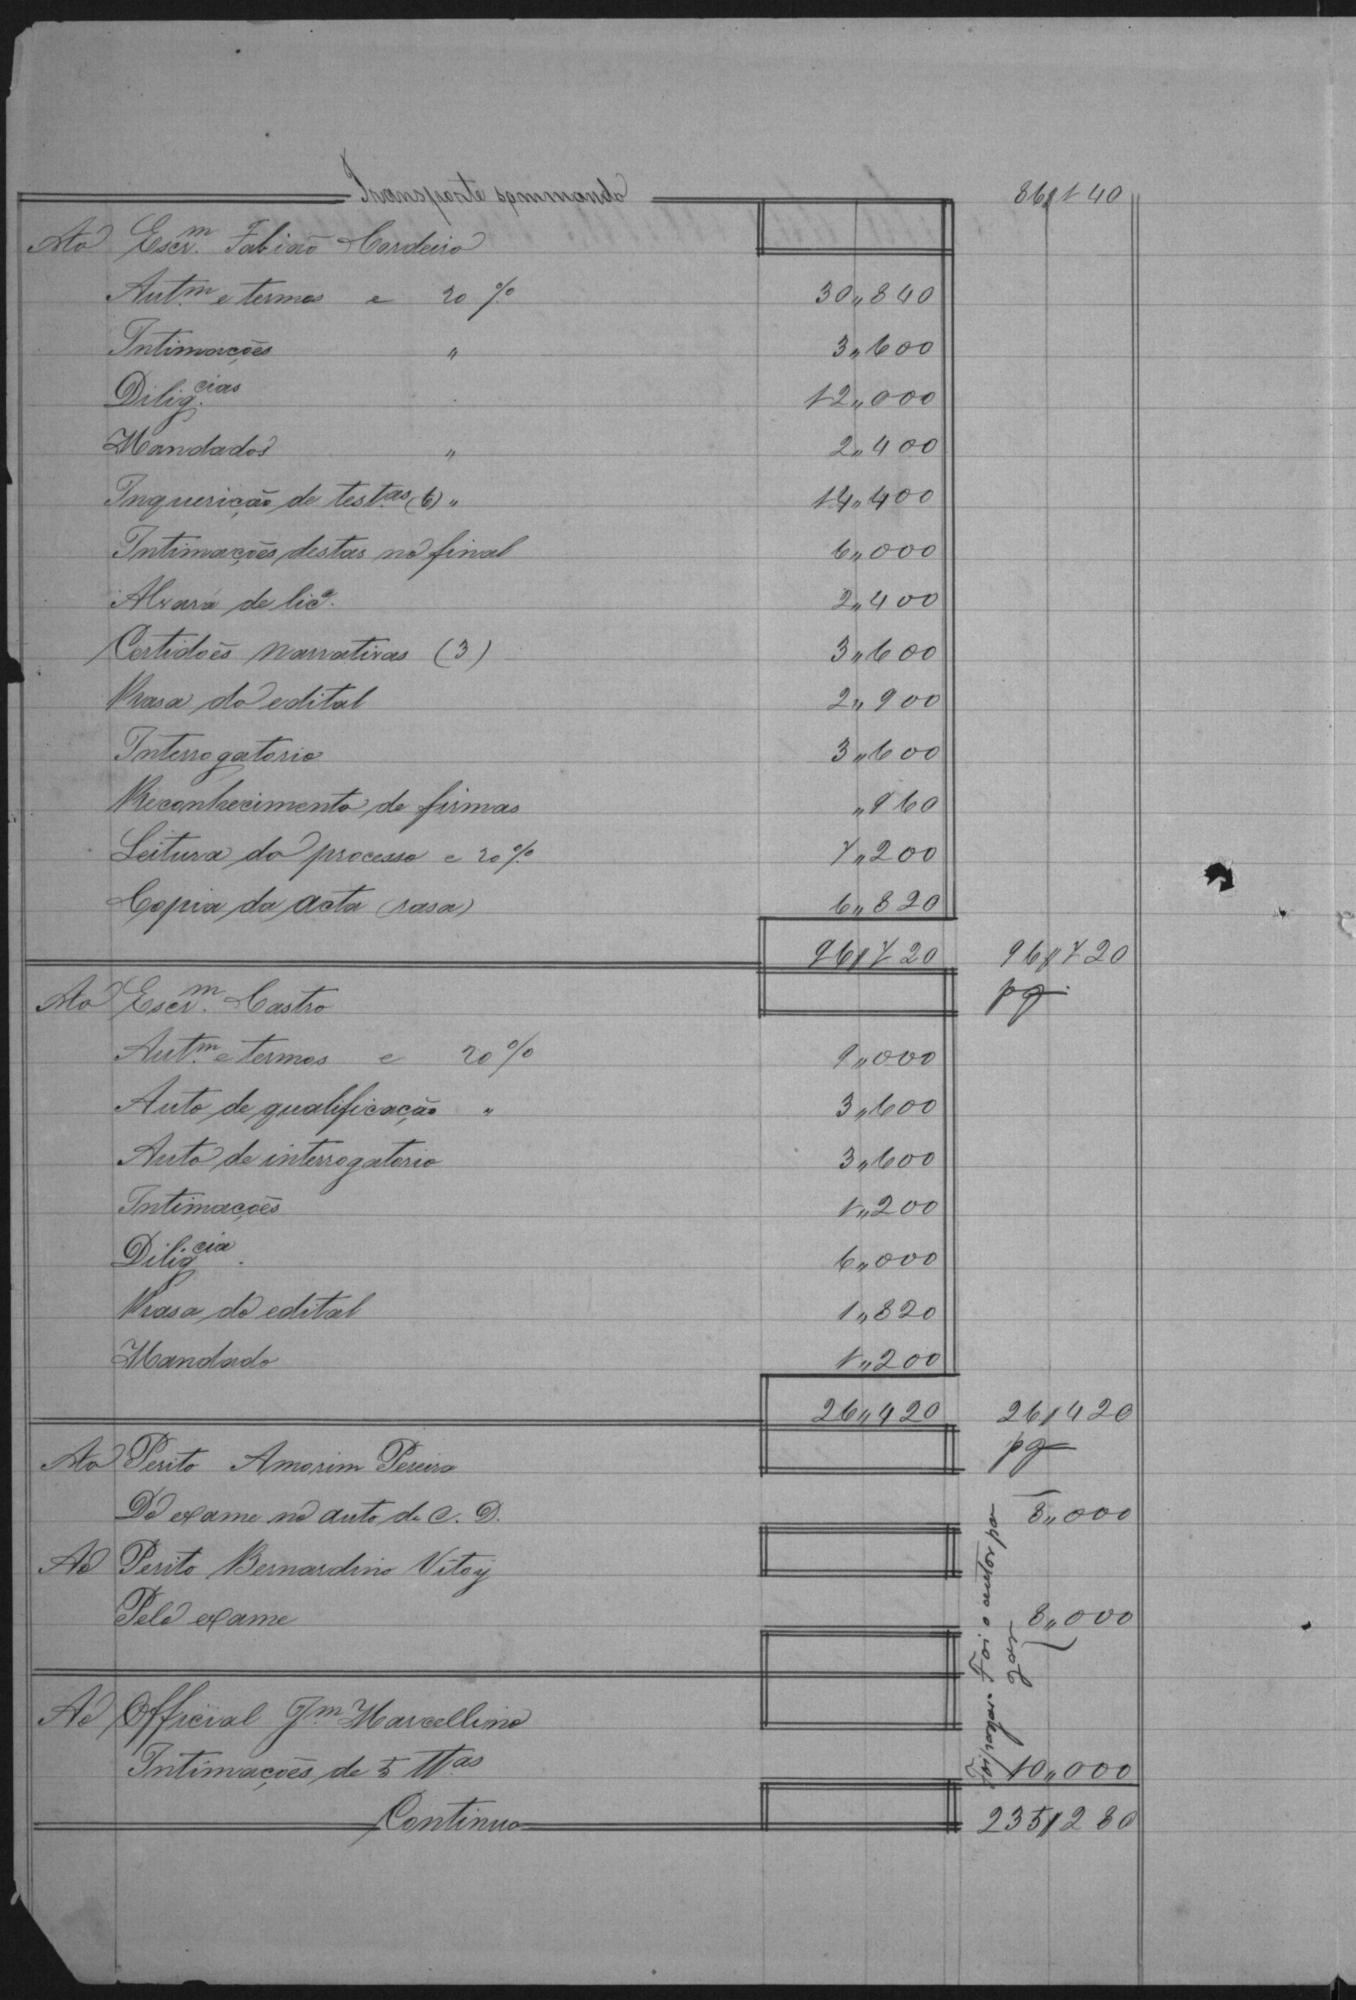 Transporte sommando 86,,140
Ao Escr.m Fabião Cordeiro
Aut.m e termos e 20 % 30,,840
Intimações " 3,,600
Dilig.cias 12,,000
Mandados " 2,,400
Inquerição de test.as (6) " 14,,400
Intimações destas no final 6,,000
Alvará de lic.a 2,,400
Certidões narrativas (3) 3,,600
Rasa do edital 2,,900
Interrogatorio 3,,600
Reconhecimento de firmas ,,960
Leitura do processo e 20 % 7,,200
Copia da acta (rasa) 6,,820
96,,720 96,,720
Ao Escr.m Castro pg.
Aut.m e termos e 20 % 9,,000
Auto de qualificação " 3,,600
Auto de interrogatorio 3,,600
Intimações 1,,200
Dilig.cia 6,,000
Rasa do edital 1,,820
Mandado 1,,200
26,,420 26,,420
Ao Perito Amorim Pereira pg
Do exame no auto de C. D. 8,,000
Ao Perito Bernardino
Pelo exame 8,,000
Foi o autor pa
gar
Ao Official J.m Marcellino
Intimações de 5 tt.as 10,,000
Continua 235,,280